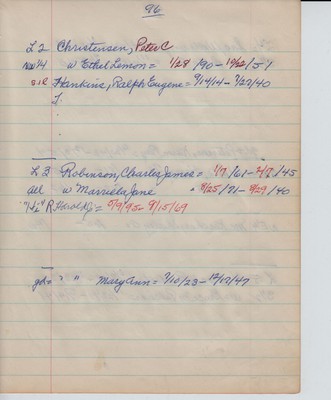 96
L 2 Christensen, Peter C
N½ 14 w Ethel Lemon = 1/28/90 - 10/22/51
S.I.L Hankins, Ralph Eugene = 9/14/14 - 7/27/40
L 3 Robinson, Charles James = 1/7/61 - 2/7/45
all w Marriela Jane " 8/25/71 - 8/29/40
R Harold J = 5/9/95 - 9/15/69
gd= " " Mary Ann = 9/10/23 - 12/12/47